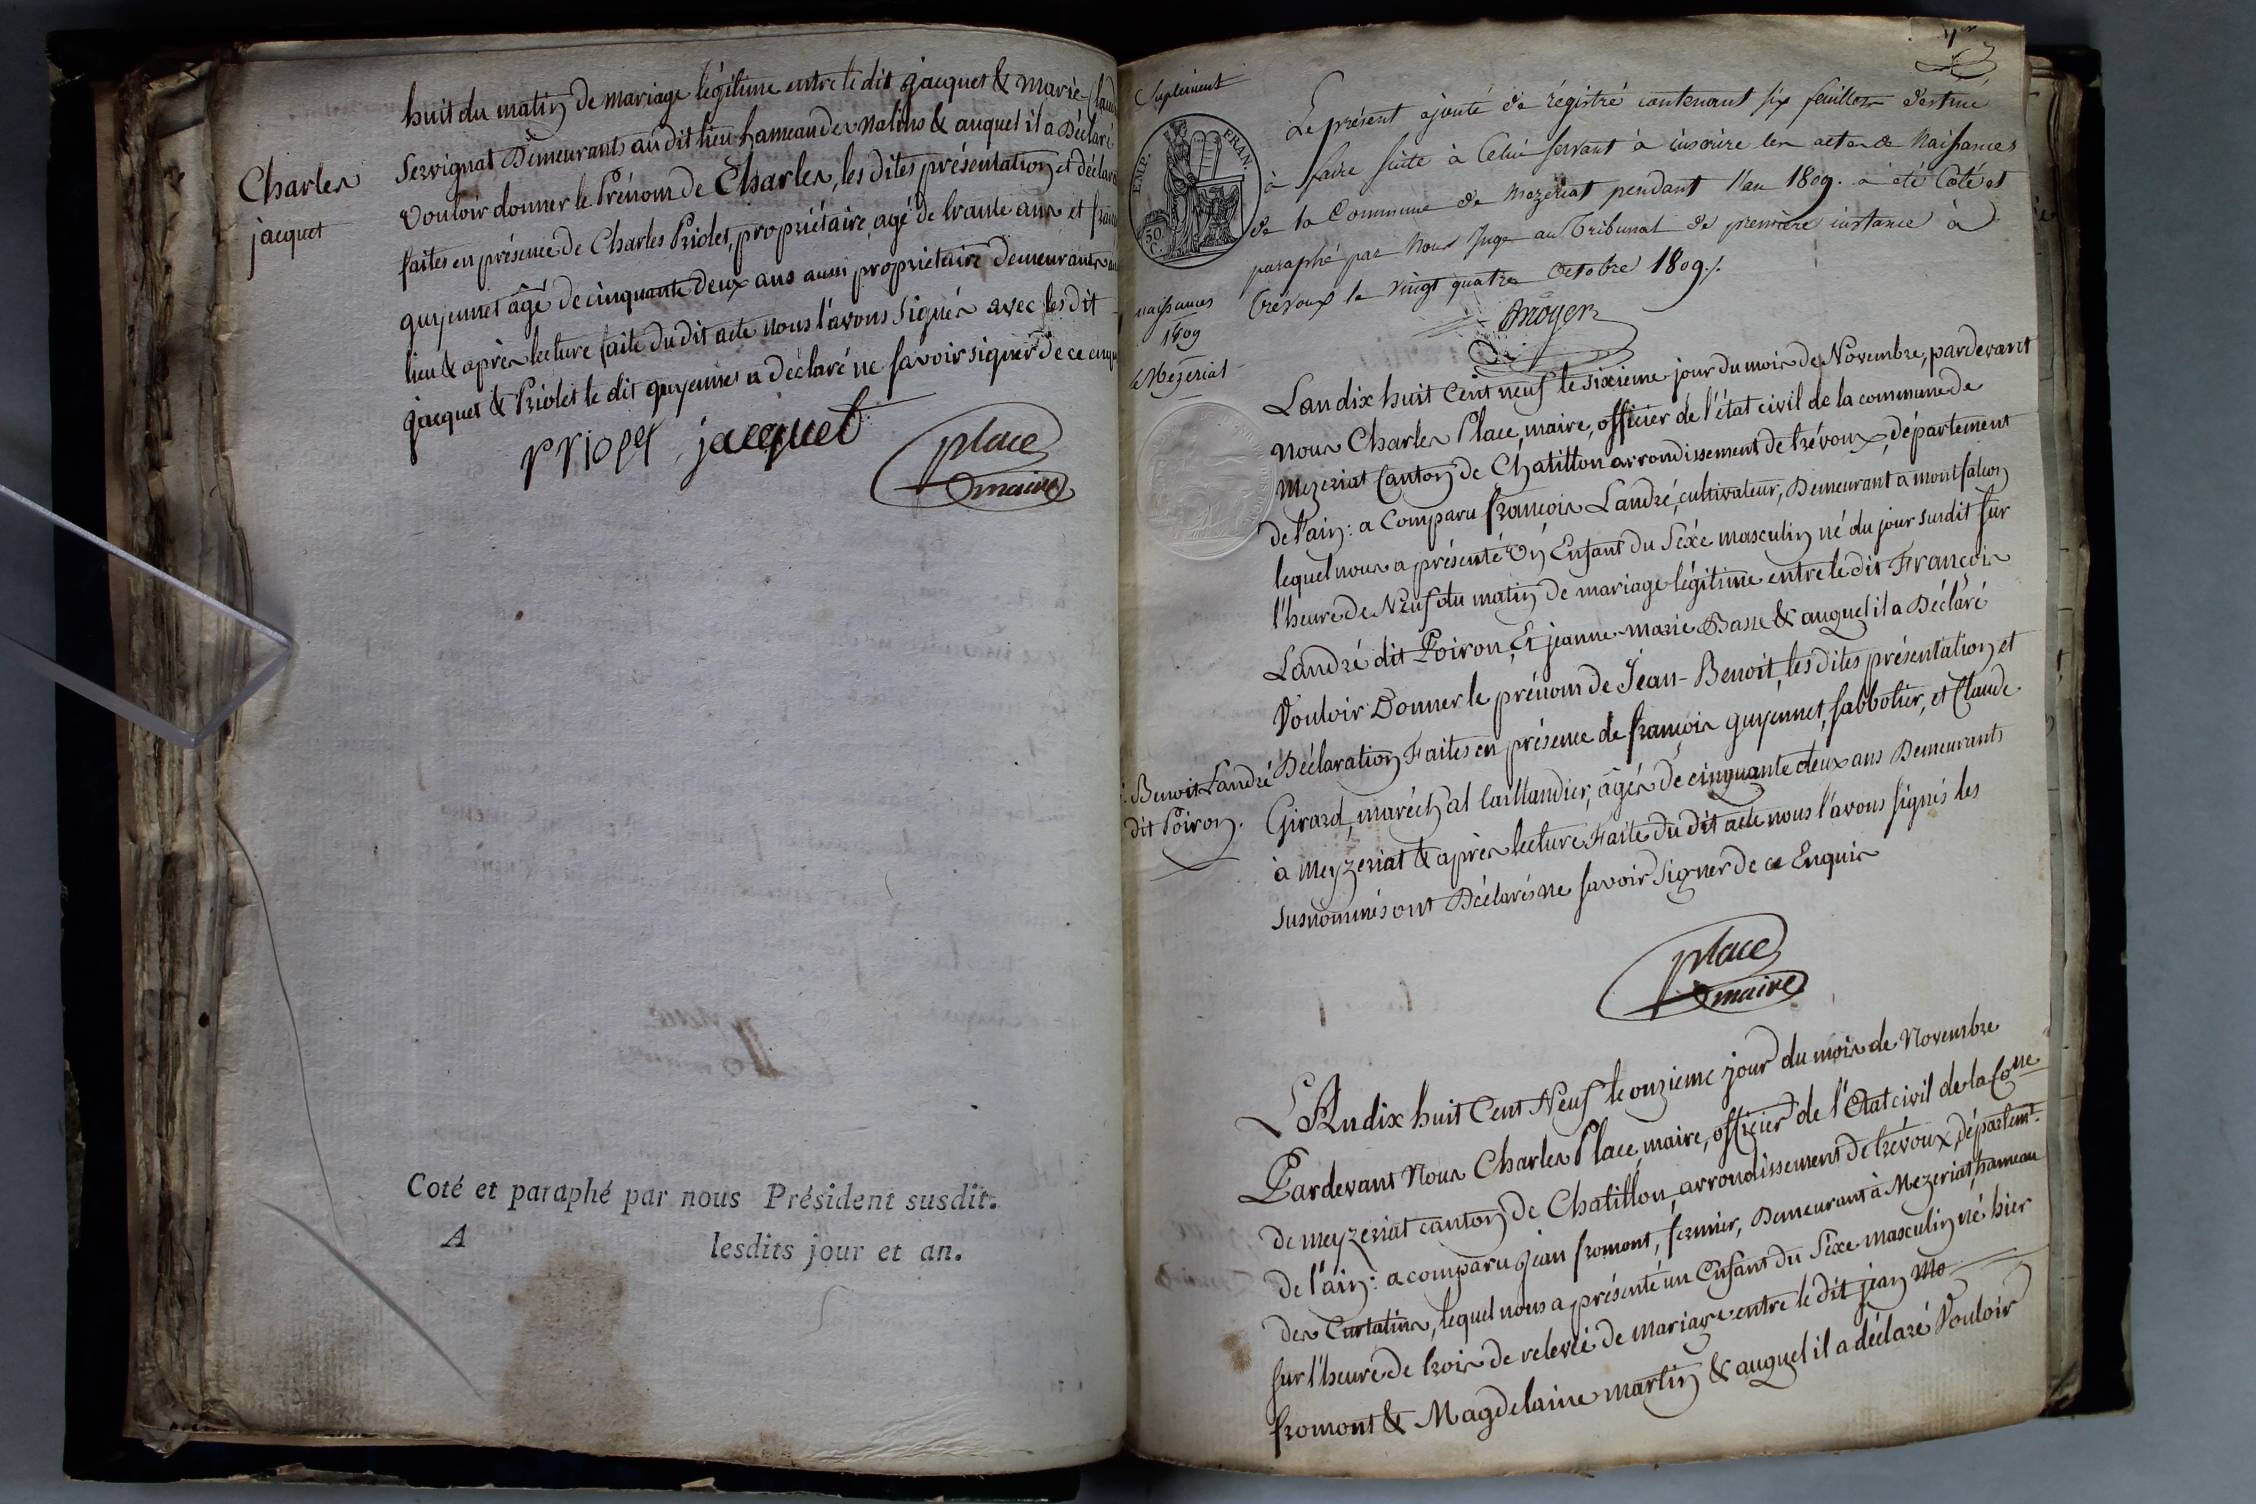 huit du matin de mariage légitime entre le dit jacquet & Marie-Claud
Servignat Demeurants au dit lieu hameau des Malins & auquel il a Déclaré
Charles
jacquet
vouloir donner le Prénom de Charles, les dites présentation et déclara
faites en présence de Charles Priolet, propriétaire, agé de trante ans et franc
guyennet âgé de cinquante deux ans aussi propriétaire demeurants au
lieu & après lecture faite du dit acte nous l'avons signés avec les dit
jacquet & Priolet le dit guyennet a déclaré ne savoir signer de ce enqui
jacquet
place
maire
Coté et paraphé par nous Président susdit.
A
lesdits jour et an.
1er
Suplément
EMP. FRAN.
50 C.
Le présent ajouté de régistre contenant six feuillets destiné
à faire suite à Celui servant à inscrire les actes de Naissances
de la Commune de Mezériat pendant l'an 1809. a été Coté et
paraphé par Nous Juge au Tribunal de première instance à
Trévoux le vingt quatre Octobre 1809./.
naissances
1809
de Mezeriat
Lan dix huit Cent neuf le sixieme jour du mois de Novembre, pardevant
nous Charles Place, maire, officier de l'état civil de la commune de
Mezeriat Canton de Chatillon arrondissement de trévoux, département
de l'ain : a Comparu françois Landré, cultivateur, Demeurant a montfalcon
lequel nous a présenté Un Enfant du Séxe masculin né du jour susdit sur
l'heure de Neuf du matin de mariage légitime entre le dit François
Landré dit Poiron, Et jeanne-marie Basse & auquel il a Déclaré
Vouloir Donner le prénom de Jean-Benoit, les dites présentation et
Benoit Landré
dit Poiron.
Déclaration Faites en présence de françois guyennet, sabbotier, et Claude
Girard, maréchal taillandier, âgés de cinquante deux ans Demeurants
à Meyzeriat & après lecture Faite du dit acte nous l'avons signés les
susnommés ont Déclarés ne savoir Signer de ce Enquis
place
maire
L'An dix huit Cent Neuf le onzieme jour du mois de Novembre
Pardevant Nous Charles Place, maire, officier de l'Etat civil de la Cone
de meyzeriat canton de Chatillon, arrondissement de trévoux, départemt.
de l'ain : a comparu jean fromont, fermier, Demeurant à Mezeriat, hameau
des Curtatins, lequel nous a présenté un Enfant du Séxe masculin né hier
sur l'heure de trois de relevée de mariage entre le dit jean Mo
fromont & Magdelaine martin & auquel il a déclaré Vouloir